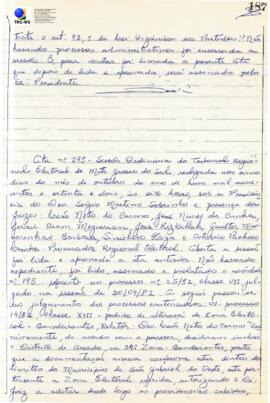 TRE-MS
187
trata o art. 93, I da Lei Orgânica dos Partidos. Não
havendo processos administrativos foi encerrada a
sessão. E, para constar foi lavrada a presente Ata
que depois de lida e aprovada será assinada pelo
Presidente.
Ata nº 295 - Sessão Ordinária do Tribunal Regio-
nal Eleitoral de Mato Grosso do Sul, realizada aos cinco
dias do mês de outubro do ano de hum mil nove-
centos e oitenta e dois, às oito horas, sob a Presidên-
cia do Des. Sergio Martins Sobrinho e presença dos
Juízes: Leão Neto do Carmo, José Nunes da Cunha,
José Rizkallah,
Barbosa,
Procurador Regional Eleitoral. Aberta a sessão
foi lida e aprovada a ata anterior. Não havendo
expediente, foi lido, assinado e prolatado o acórdão
nº 195, referente ao processo nº 25/82, classe VII, jul-
gado na sessão de 30/09/82. Em seguida passou-se
ao julgamento dos processos
14/82, Classe XIII - pedido de alteração da Zona Eleito-
ral - Bandeirantes, Relator: Des. Leão Neto do Carmo. Una-
nimemente, de acordo com o parecer, decidiram
o Distrito de Areado, na 34ª Zona - Bandeirantes, posto
que a documentação anexa comprova estar dentro dos
limites do Município de São Gabriel do Oeste, este per-
tencente a Zona Eleitoral referida, autorizando o
Juiz a adotar desde logo as providências cabíveis,